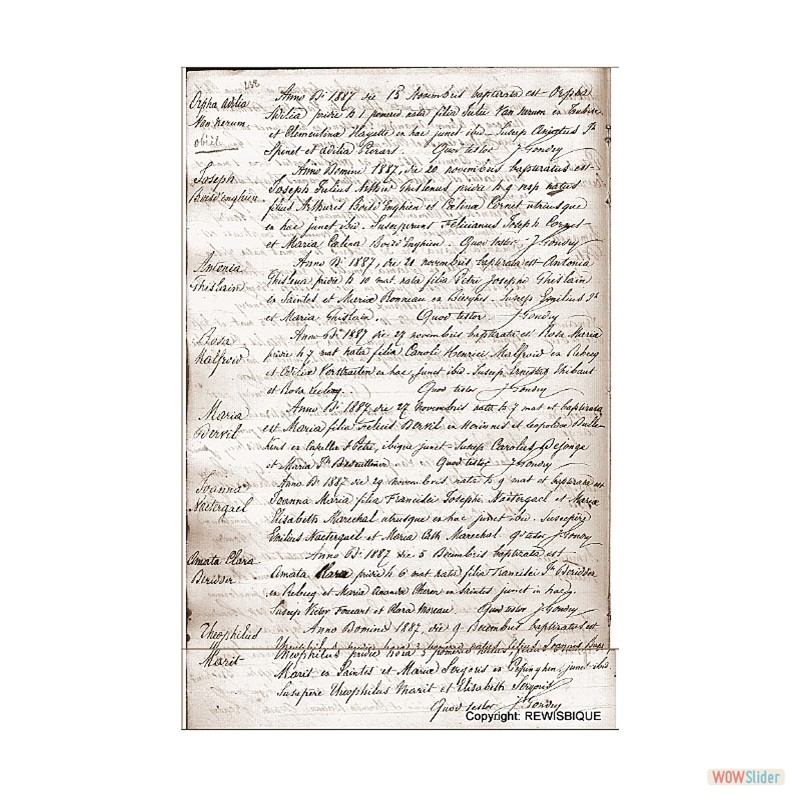 Orpha Adilia
Van nerum.
obiit.
Anno Di 1887 die 15 Novembris baptizata est Orpha
Adilia pridie h 1 pomerid nata filia Julii Van nerum ex
et Clementina Hayette ex hac junct ibid. Suscep
Spinet et Adilia Pierart. Quod testor J. Gondry
Joseph
Boisd'enghien.
Anno Domini 1887, die 20 novembris baptizatus est
Joseph Julius Arthur Ghislenus pridie h 9 natus
filius Arthuris Boisd'Enghien et Celina Cornet utriusque
ex hac junct ibid. Susceperunt Felicianus Joseph Cornet
et Maria Celina Boisd'Enghien. Quod testor J. Gondry
Antonia
Ghislain
Anno Di 1887, die 21 novembris baptizata est Antonia
pridie h 10 mat. nata filia Petri Josephi Ghislain
ex Saintes et Maria Bonneau ex Bierghes. Suscep Emilius
et Maria Ghislain. Quod testor J. Gondry
Rosa
Malfroid
Anno Di 1887 die 27 novembris baptizata est Rosa Maria
pridie h 7 mat nata filia Caroli Henrici Malfroid ex Rebecq
et Odilie Verstraeten ex hac, junct ibid. Suscep Ernestus Thibaut
et Rosa Quod testor J. Gondry
Maria
Dervil
Anno Di 1887, die 27 Novembris nata h 7 mat et baptizata
est Maria filia Dervil ex et Leopoldina
ex Capelle ibique junct - Suscep Carolus Dejonge
et Maria Quod testor J. Gondry
Joanna
Nactergael
Anno Di 1887 die 29 Novembris nata h 9 mat et baptizata est
Joanna Maria filia Francisci Josephi Nactergael et Maria
Elisabeth Marechal utriusque ex hac junct ibid. Suscepere
Emilius Nactergael et Maria Cath Marechal. Qd testor J. Gondry
Amata Clara
Deridder
Anno Di 1887 die 5 Decembris baptizata est
Amata Clara pridie h 6 mat nata filia Francisci Jh Deridder
ex Rebecq et Maria Amanda Cheron ex Saintes junct in hac.
Suscep Victor Fouart et Clara Moreau. Quod testor J. Gondry
Theophilus
Marit
Anno Domini 1887, die 9 Decembris baptizatus est
Theophilus pridie hora 3 pomerid natus, filius
Marit ex Saintes et Maria Sergoris ex Pepinghen, junct ibid.
Suscepere Theophilus Marit et Elisabeth Sergoris
Quod testor J. Gondry
Copyright: REWISBIQUE
WOWSlider